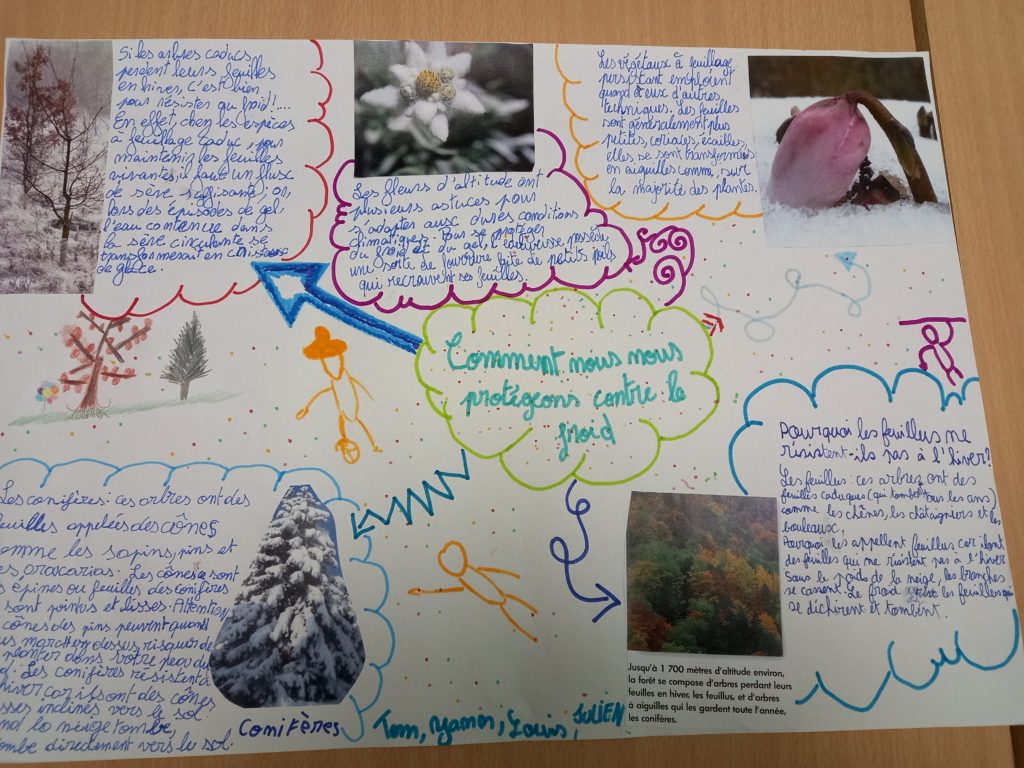 Si les arbres caducs
perdent leurs feuilles
en hiver, c'est bien
pour résister au froid!...
En effet chez les espèces
à feuillage caduc, pour
maintenir les feuilles
vivantes, il faut un flux
de sève suffisante; or,
lors des épisodes de gel,
l'eau contenue dans
la sève circulante se
transformerait en cristaux
de glace.
Les fleurs d'altitude ont
plusieurs astuces pour
s'adapter aux dures conditions
climatiques. Pour se protéger
du froid et du gel, l'edelweisse possède
une sorte de fourrure faite de petits poils
qui recrauvent ses feuilles.
Les végétaux à feuillage
persistant emploient
quand à eux d'autres
techniques. Les feuilles
sont généralement plus
petites, coriaces, écailles,
elles se sont transformées
en aiguilles comme, sur
la majorité des plantes.
Comment nous nous
protégeons contre le
froid
Les conifères: ces arbres ont des
feuilles appelées des cônes
comme les sapins, pins et
oracarias. Les cônes sont
épines ou feuilles des conifères
sont pointus et lisses. Attention
cônes des pins peuvent quand
marchez dessus, risquer de
planter dans votre peau du
Les conifères résistent à
hiver car ils ont des cônes
inclinés vers le sol.
la neige tombe,
tombe directement vers le sol.
Conifères
Tom, Yamen, Louis, JULIEN
Pourquoi les feuillus ne
résistent-ils pas à l'hiver?
Les feuilles: ces arbres ont des
feuilles caduques (qui tombent tous les ans)
comme les chênes, les châtaigniers et les
bouleaux,
Pourquoi les appellent feuillus car ils ont
des feuilles qui ne résistent pas à l'hiver
Sous le poids de la neige, les branches
se cassent. Le froid les feuilles qui
se déchirent et tombent.
Jusqu'à 1 700 mètres d'altitude environ,
la forêt se compose d'arbres perdant leurs
feuilles en hiver, les feuillus, et d'arbres
à aiguilles qui les gardent toute l'année,
les conifères.